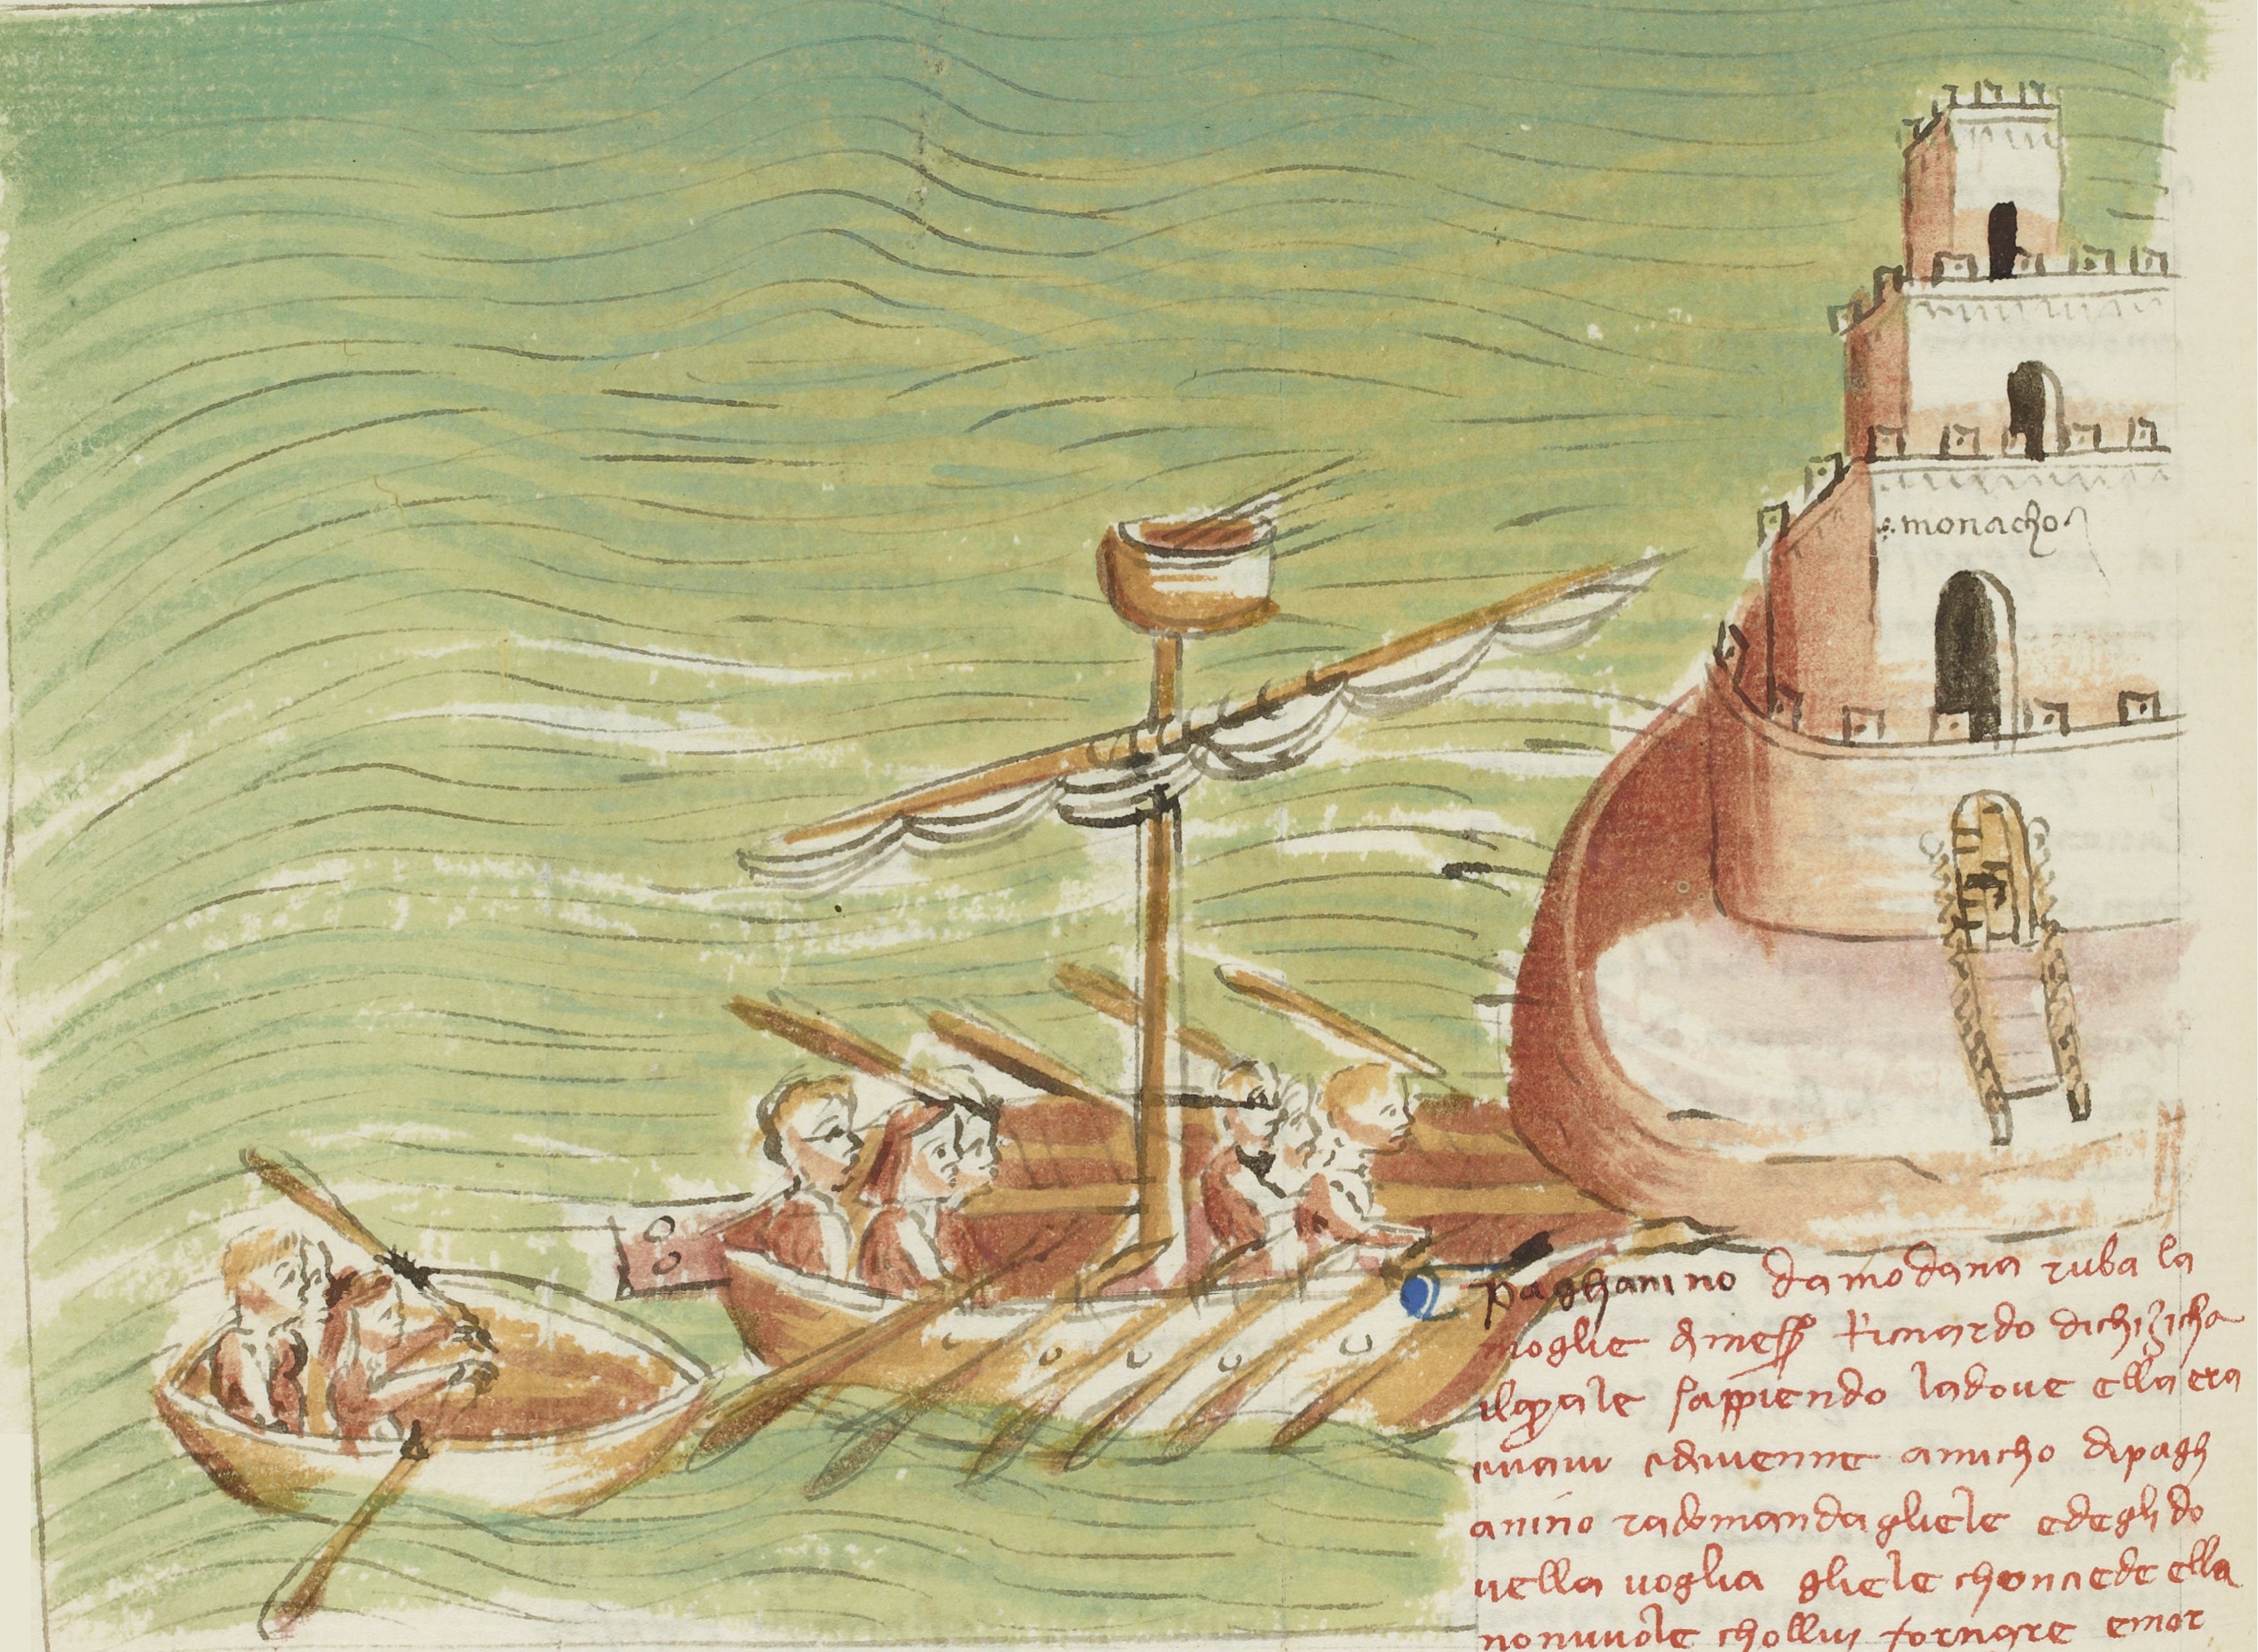 monacho
paghanino da modana ruba la
moglie a mess Ricciardo di chizicha
ilquale sappiendo ladove ella era
 edivenne amicho di pagh
anino radomandagliele edegli do
vella voglia gliele chonciede ella
nonvuole chollui tornare e mor